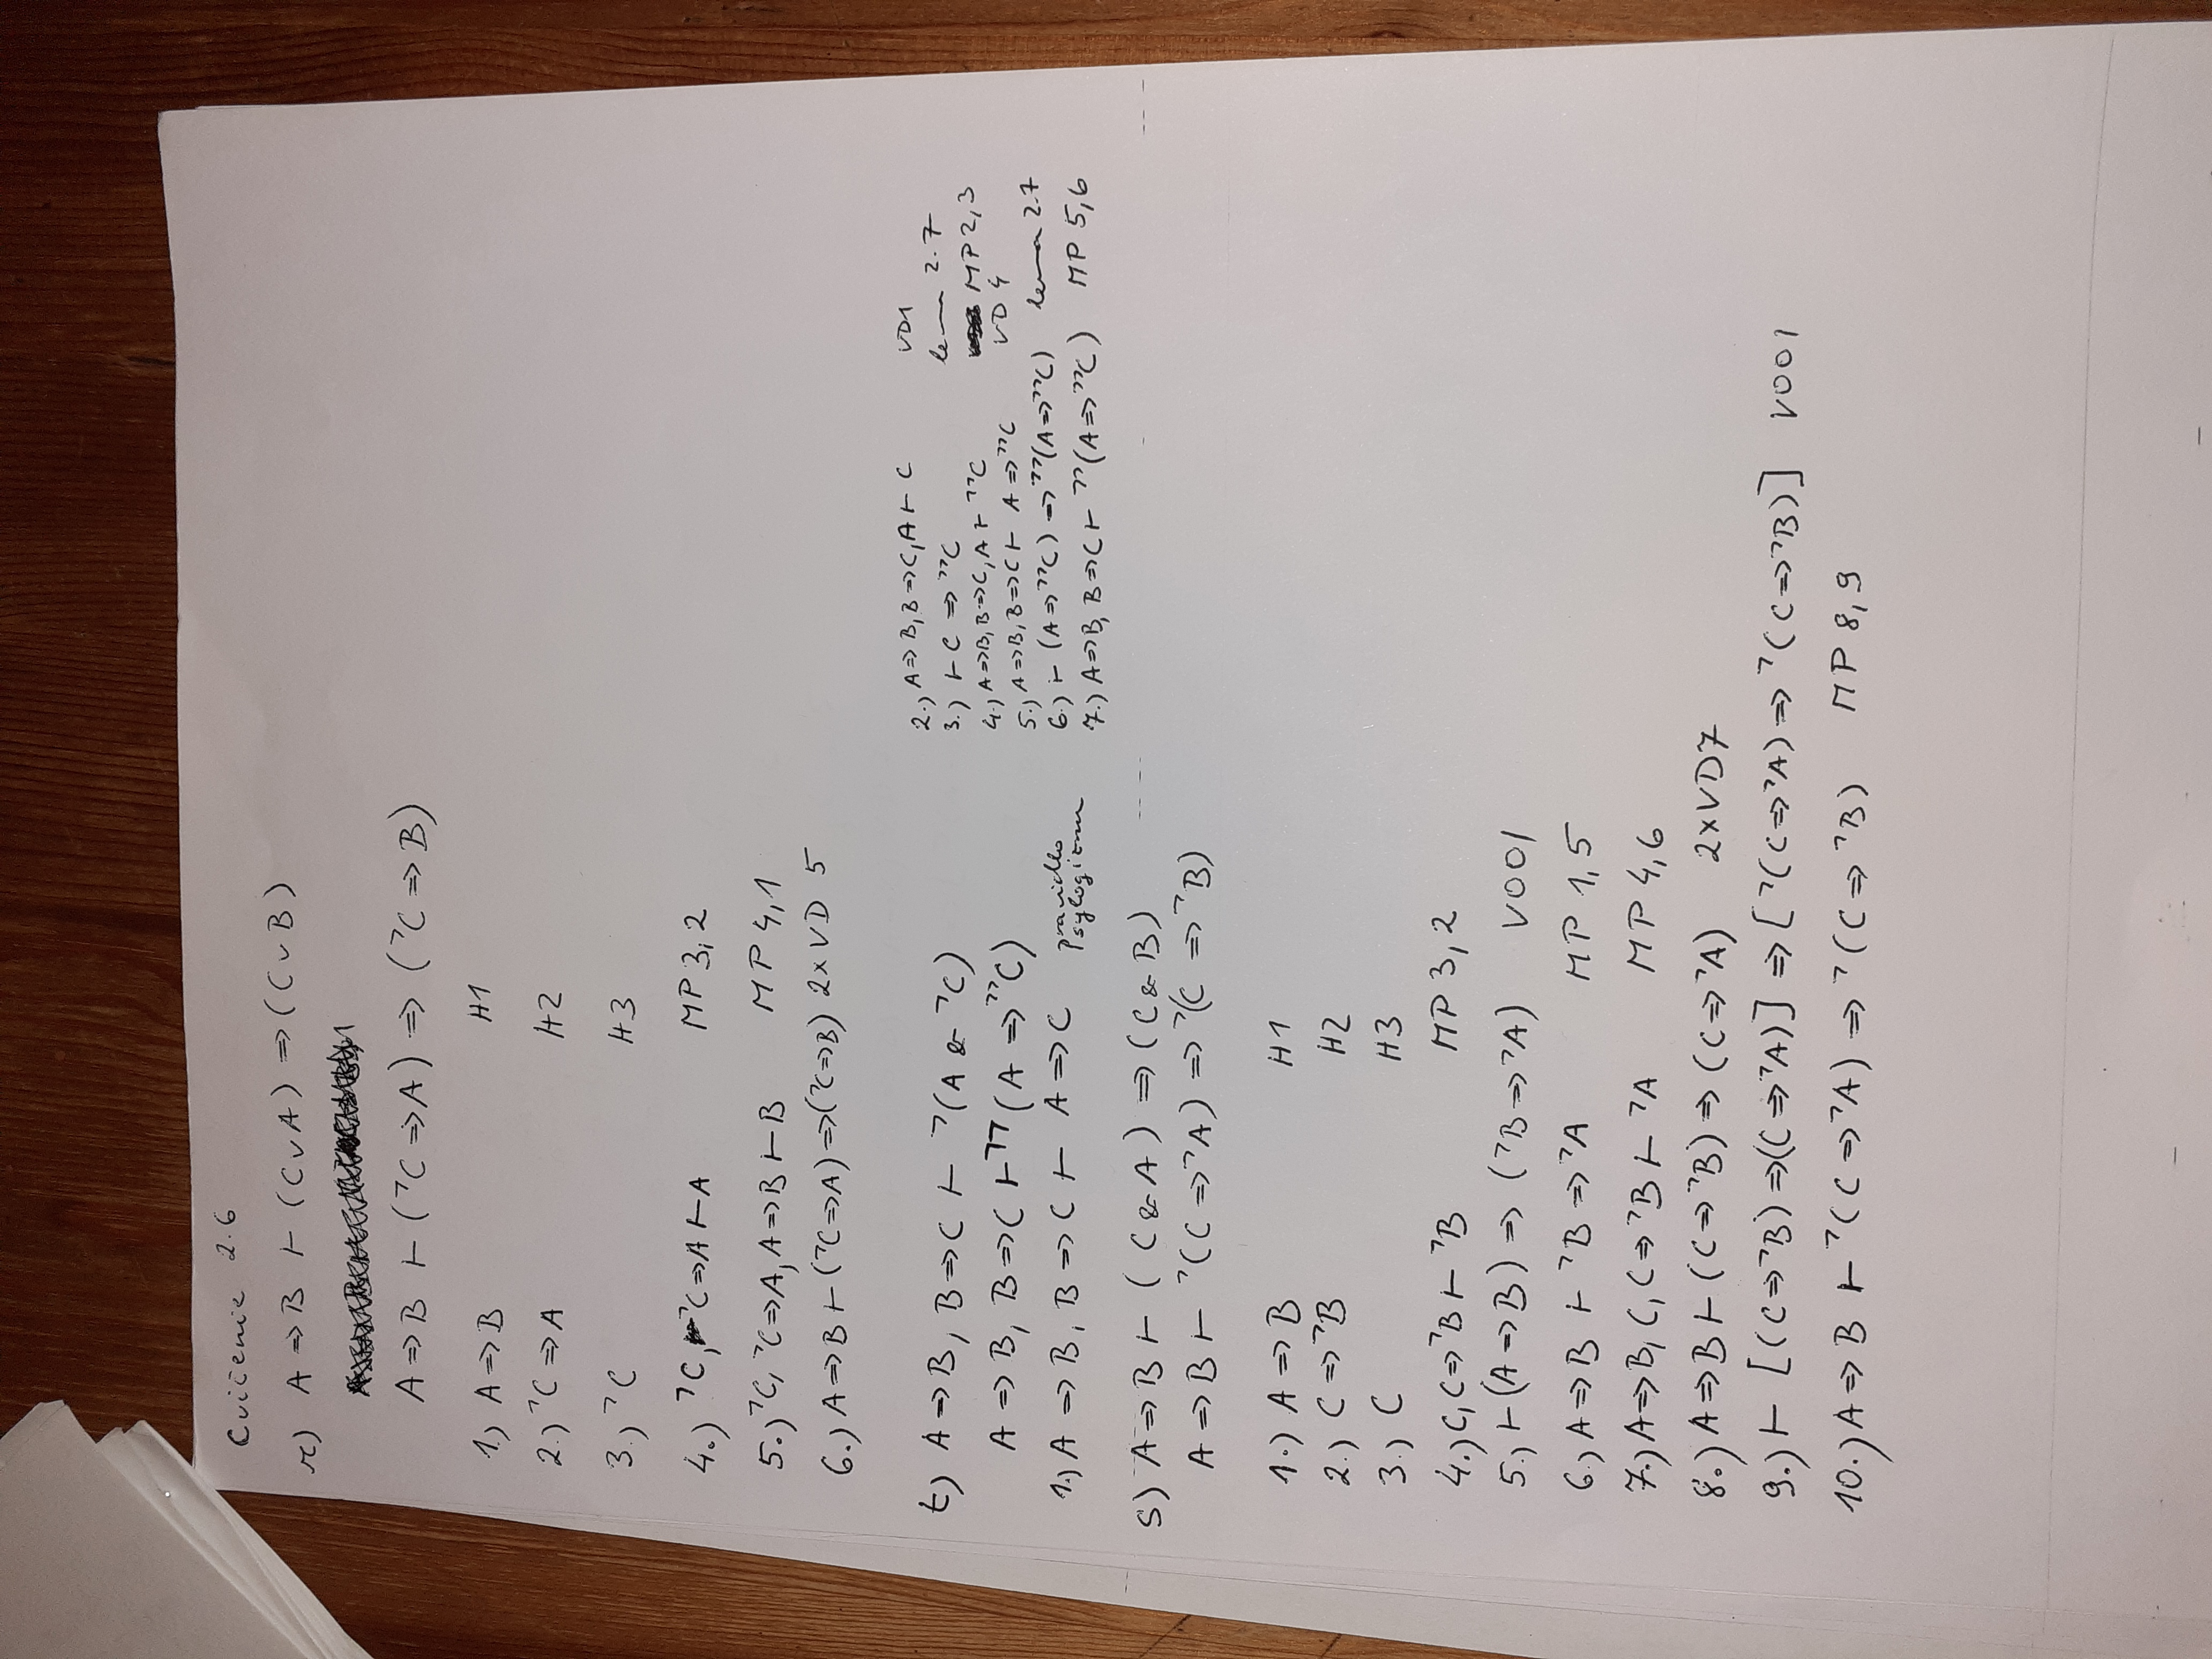 Cvičenie 2.6
r) A => B ⊢ (C ∨ A) => (C ∨ B)
A => B ⊢ (⌝C => A) => (⌝C => B)
1.) A => B H1
2.) ⌝C => A H2
3.) ⌝C H3
4.) ⌝C, ⌝C => A ⊢ A MP 3,2
5.) ⌝C, ⌝C => A, A => B ⊢ B MP 4,1
6.) A => B ⊢ (⌝C => A) => (⌝C => B) 2x VD 5
t) A => B, B => C ⊢ ⌝(A & ⌝C)
A => B, B => C ⊢ ⌝⌝(A => ⌝⌝C)
1.) A => B, B => C ⊢ A => C pravidlo sylogizmu
2.) A => B, B => C, A ⊢ C VD1
3.) ⊢ C => ⌝⌝C lema 2.7
4.) A => B, B => C, A ⊢ ⌝⌝C MP 2,3
5.) A => B, B => C ⊢ A => ⌝⌝C VD 4
6.) ⊢ (A => ⌝⌝C) => ⌝⌝(A => ⌝⌝C) lema 2.7
7.) A => B, B => C ⊢ ⌝⌝(A => ⌝⌝C) MP 5,6
s) A => B ⊢ (C & A) => (C & B)
A => B ⊢ ⌝(C => ⌝A) => ⌝(C => ⌝B)
1.) A => B H1
2.) C => ⌝B H2
3.) C H3
4.) C, C => ⌝B ⊢ ⌝B MP 3,2
5.) ⊢ (A => B) => (⌝B => ⌝A) VOOI
6.) A => B ⊢ ⌝B => ⌝A MP 1,5
7.) A => B, C, C => ⌝B ⊢ ⌝A MP 4,6
8.) A => B ⊢ (C => ⌝B) => (C => ⌝A) 2x VD7
9.) ⊢ [(C => ⌝B) => (C => ⌝A)] => [⌝(C => ⌝A) => ⌝(C => ⌝B)] VOOI
10.) A => B ⊢ ⌝(C => ⌝A) => ⌝(C => ⌝B) MP 8,9